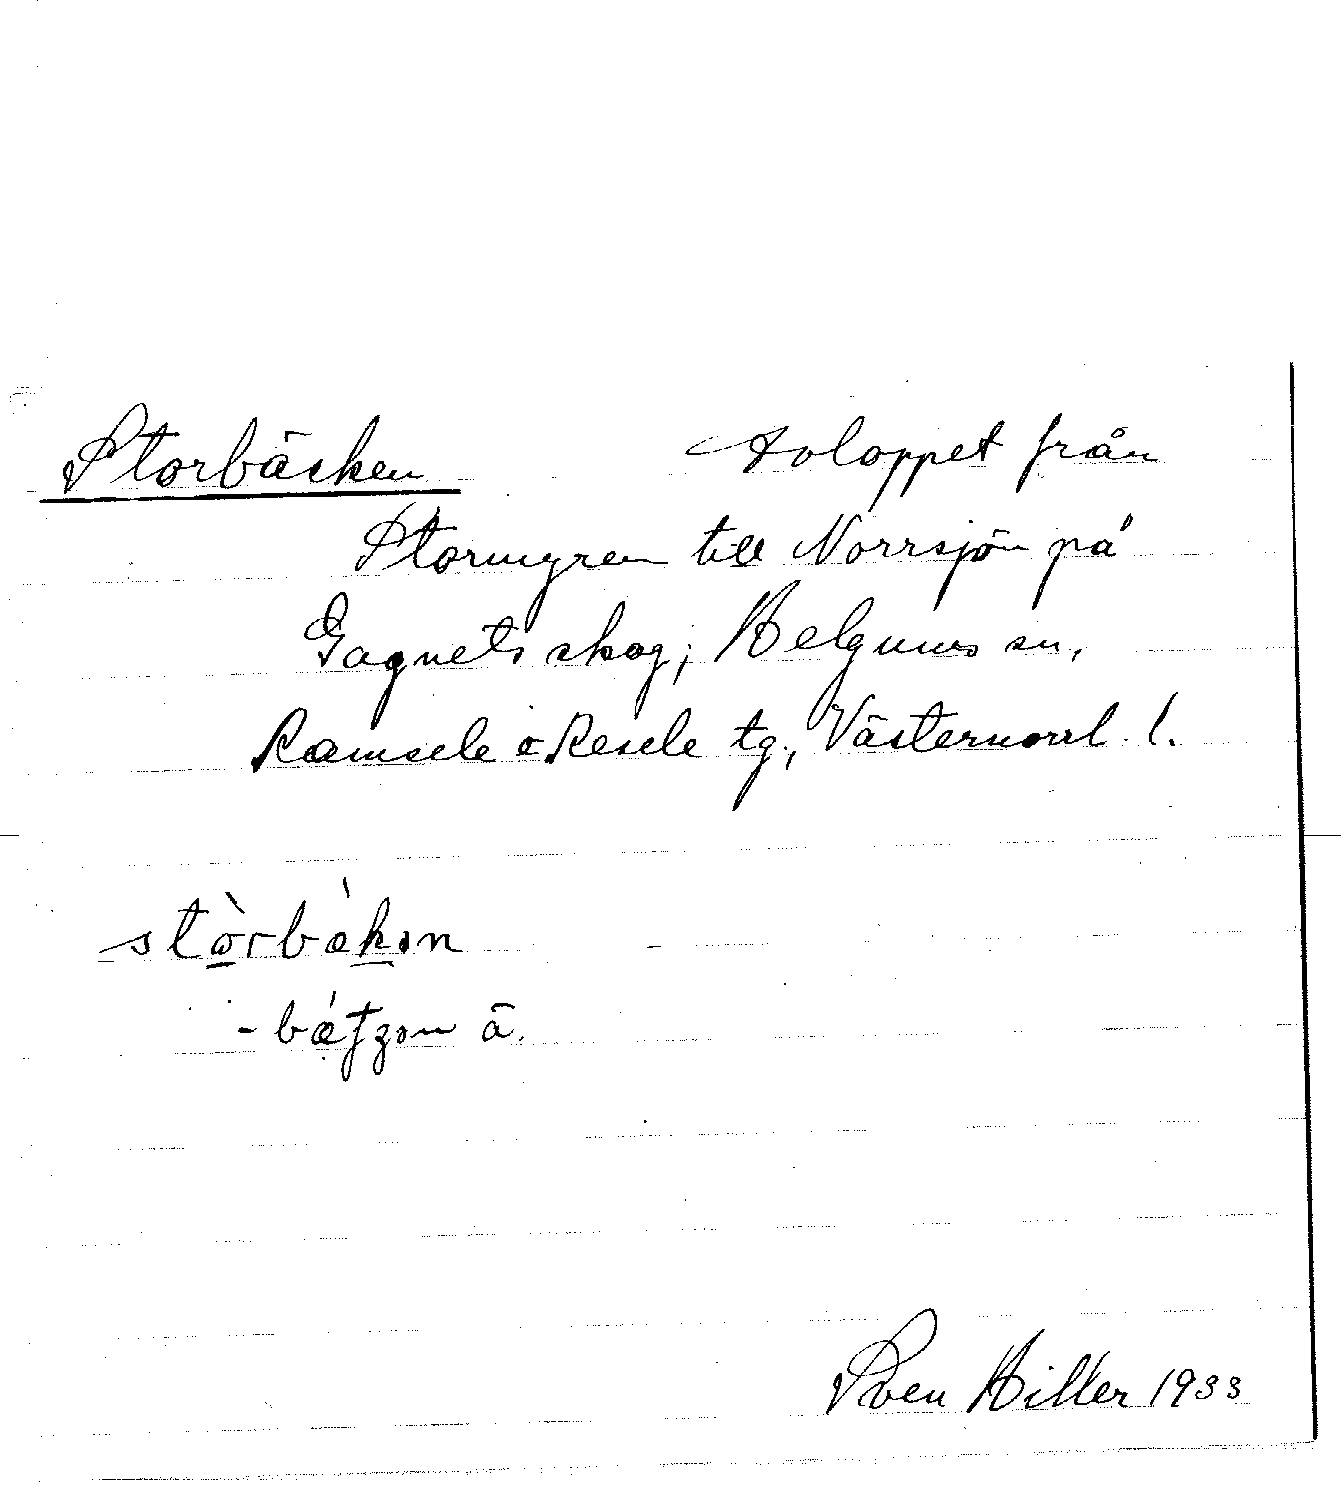 Storbäcken Avloppet från
Stormyren till Norrsjön på
Gagnets skog, Helgums sn,
Ramsele o Resele tg., Västernorrl. l.
stò̱rbæ̀ḵən
Sven Hiller 1933